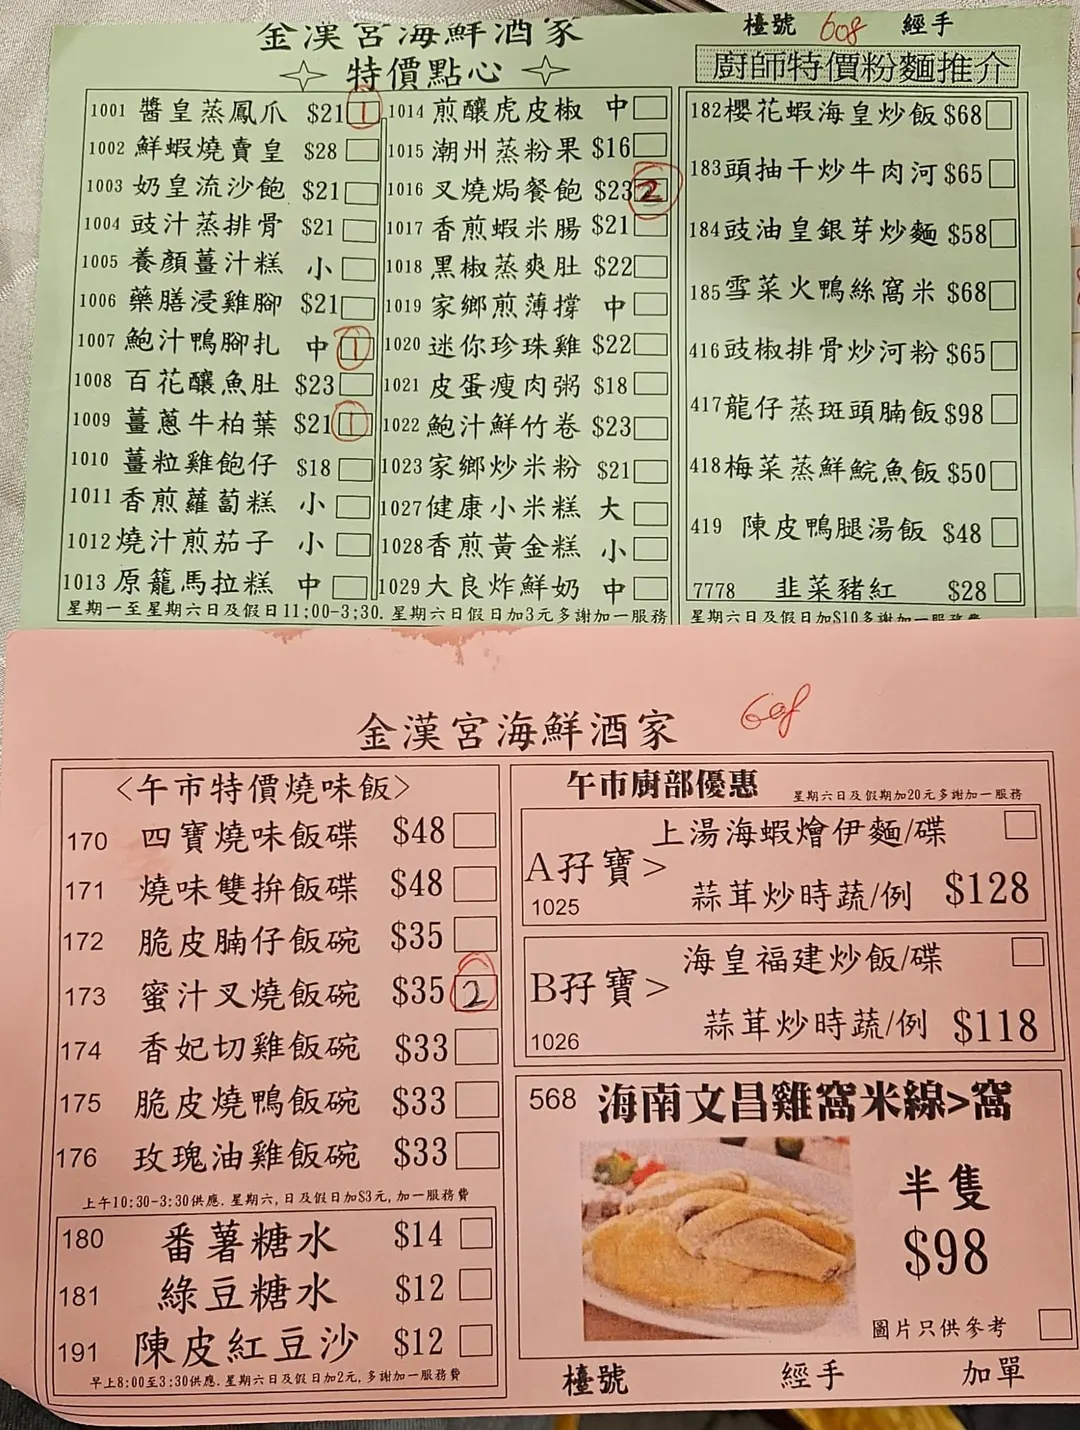 金漢宮海鮮酒家
檯號 608 經手
特價點心
廚師特價粉麵推介
1001 醬皇蒸鳳爪 $21 1
1002 鮮蝦燒賣皇 $28
1003 奶皇流沙飽 $21
1004 豉汁蒸排骨 $21
1005 養顏薑汁糕 小
1006 藥膳浸雞腳 $21
1007 鮑汁鴨腳扎 中 1
1008 百花釀魚肚 $23
1009 薑蔥牛柏葉 $21 1
1010 薑粒雞飽仔 $18
1011 香煎蘿蔔糕 小
1012 燒汁煎茄子 小
1013 原籠馬拉糕 中
1014 煎釀虎皮椒 中
1015 潮州蒸粉果 $16
1016 叉燒焗餐飽 $23 2
1017 香煎蝦米腸 $21
1018 黑椒蒸爽肚 $22
1019 家鄉煎薄撐 中
1020 迷你珍珠雞 $22
1021 皮蛋瘦肉粥 $18
1022 鮑汁鮮竹卷 $23
1023 家鄉炒米粉 $21
1027 健康小米糕 大
1028 香煎黃金糕 小
1029 大良炸鮮奶 中
星期一至星期六日及假日11:00-3:30. 星期六日假日加3元多謝加一服務
182 櫻花蝦海皇炒飯 $68
183 頭抽干炒牛肉河 $65
184 豉油皇銀芽炒麵 $58
185 雪菜火鴨絲窩米 $68
416 豉椒排骨炒河粉 $65
417 龍仔蒸斑頭腩飯 $98
418 梅菜蒸鮮鯇魚飯 $50
419 陳皮鴨腿湯飯 $48
7778 韭菜豬紅 $28
星期六日及假日加$10多謝加一服務費
金漢宮海鮮酒家 608
<午市特價燒味飯>
170 四寶燒味飯碟 $48
171 燒味雙拚飯碟 $48
172 脆皮腩仔飯碗 $35
173 蜜汁叉燒飯碗 $35 2
174 香妃切雞飯碗 $33
175 脆皮燒鴨飯碗 $33
176 玫瑰油雞飯碗 $33
上午10:30-3:30供應. 星期六, 日及假日加$3元, 加一服務費
180 番薯糖水 $14
181 綠豆糖水 $12
191 陳皮紅豆沙 $12
早上8:00至3:30供應. 星期六日及假日加2元, 多謝加一服務費
午市廚部優惠 星期六日及假期加20元多謝加一服務
上湯海蝦燴伊麵/碟
A孖寶>
蒜茸炒時蔬/例 $128
1025
海皇福建炒飯/碟
B孖寶>
蒜茸炒時蔬/例 $118
1026
568 海南文昌雞窩米線>窩
半隻
$98
圖片只供參考
檯號 經手 加單